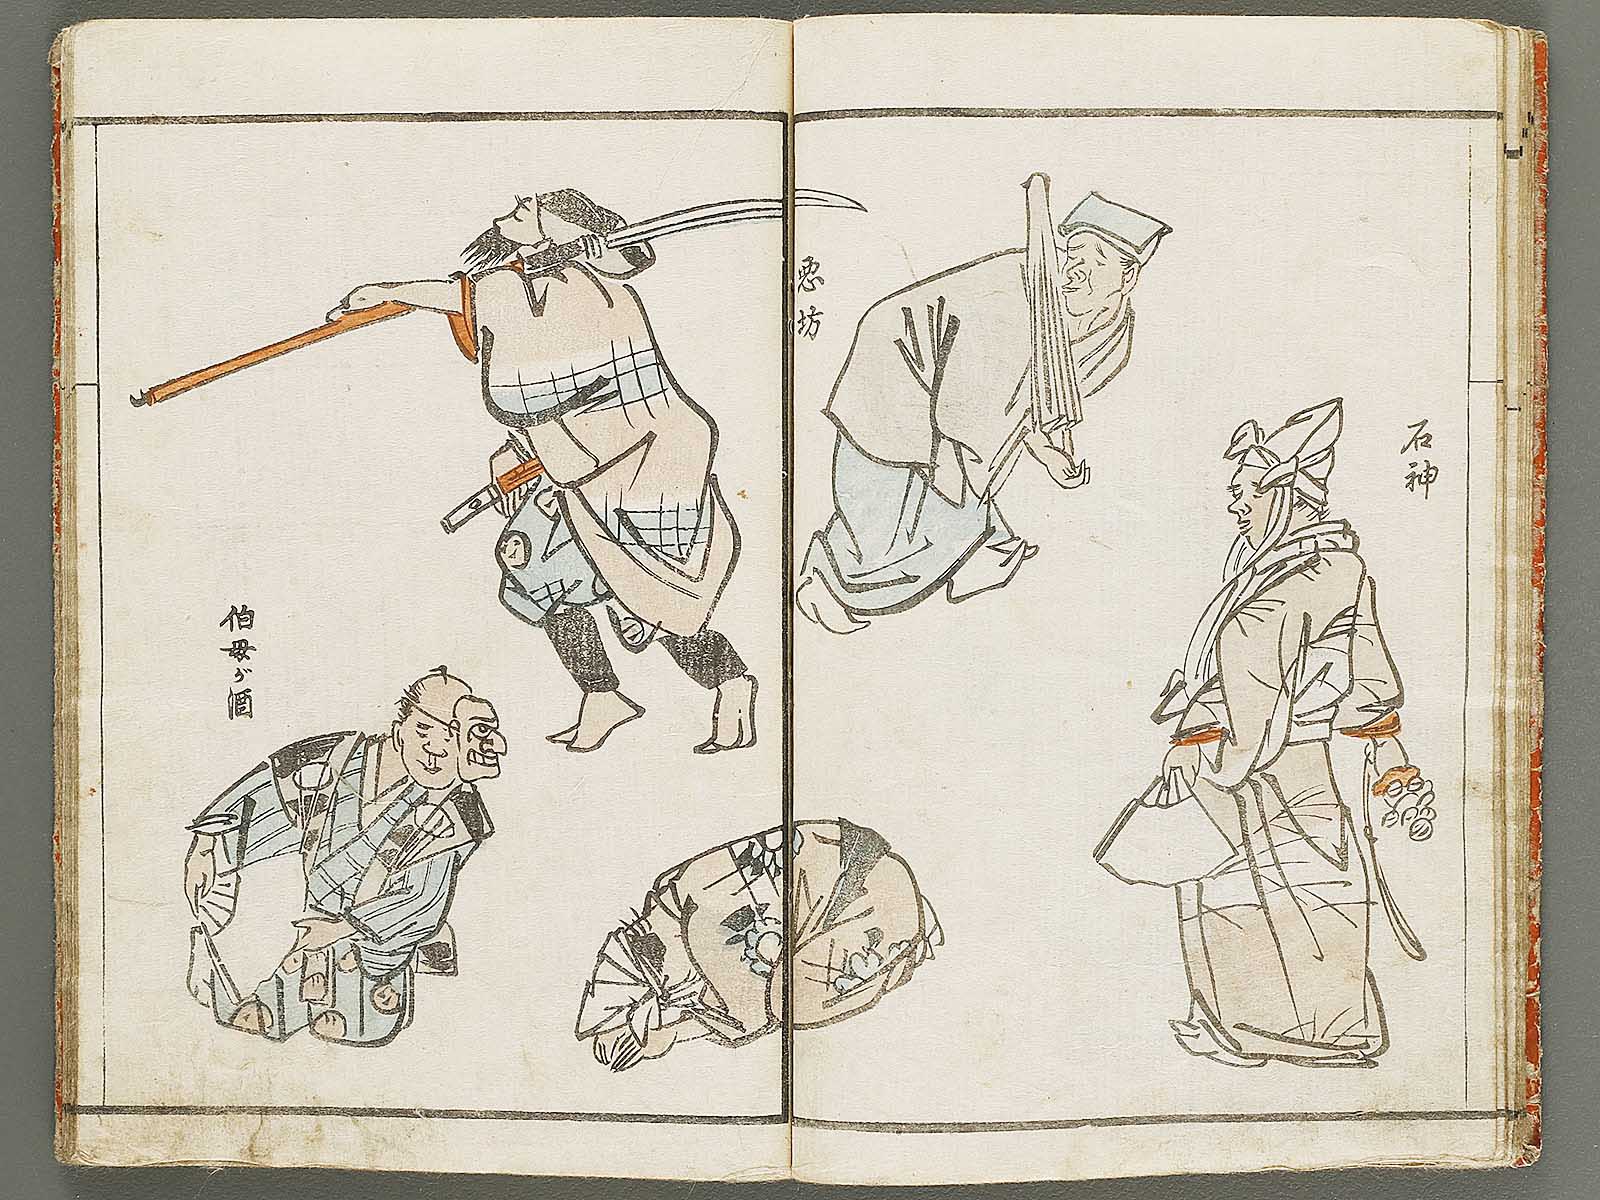 石神
悪坊
伯母が酒